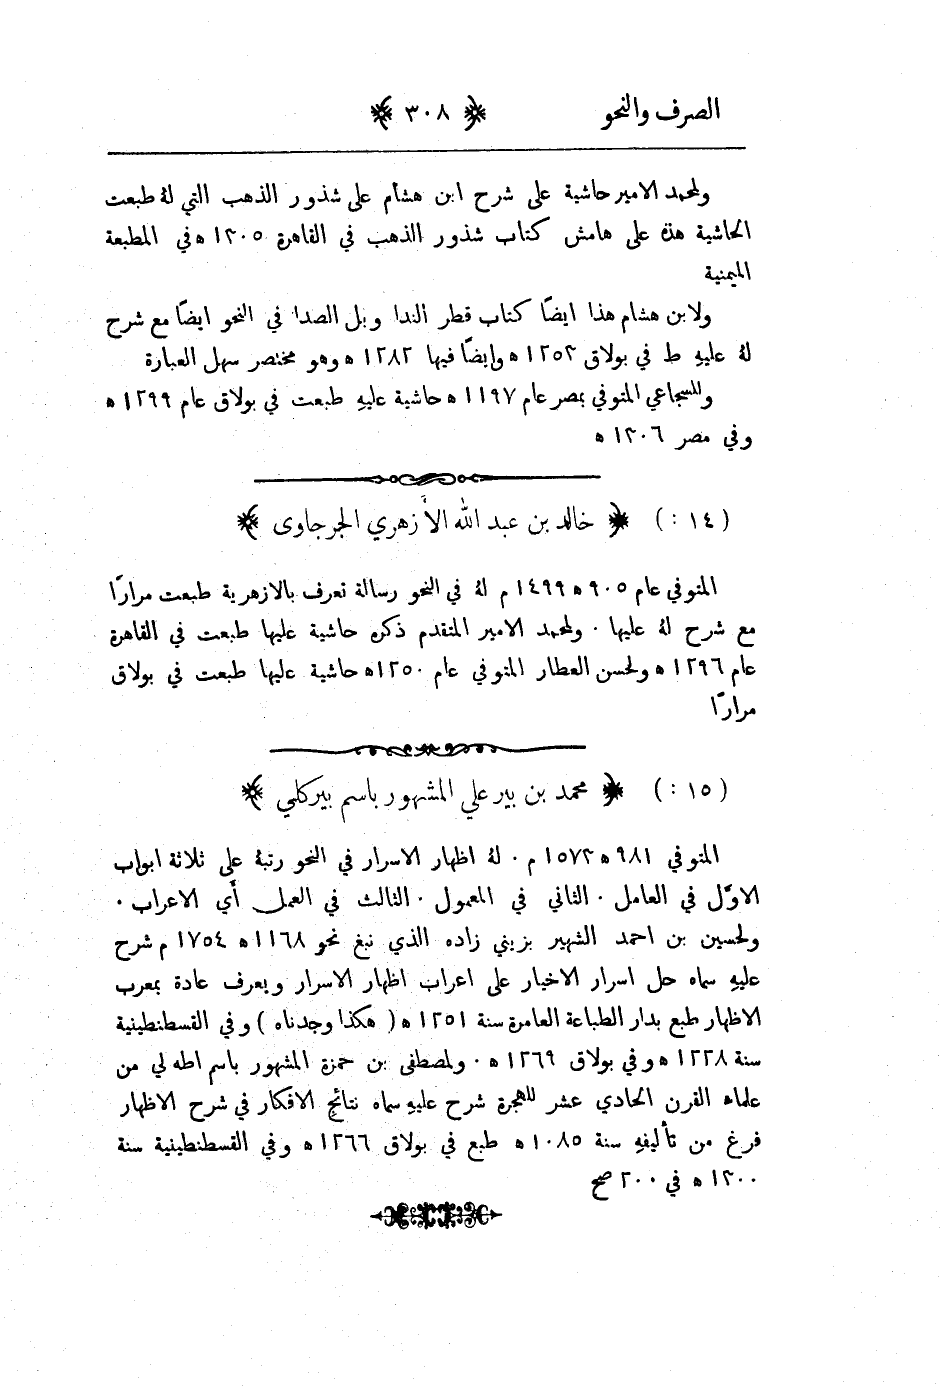 الصرف والنحو ﴿ ٣٠٨ ﴾
ولمحمد الامير حاشية على شرح ابن هشام على شذور الذهب التي لهُ طبعت
الحاشية هذه على هامش كتاب شذور الذهب في القاهرة ١٣٠٥ ه في المطبعة
الميمنية
ولابن هشام هذا ايضًا كتاب قطر الندا وبل الصدا في النحو ايضًا مع شرح
لهُ عليهِ ط في بولاق ١٢٥٣ ه وايضًا فيها ١٢٨٢ ه وهو مختصر سهل العبارة
وللسجاعي المتوفي بمصر عام ١١٩٧ ه حاشية عليهِ طبعت في بولاق عام ١٢٩٩ ه
وفي مصر ١٣٠٦ ه
( ١٤ : ) ﴿ خالد بن عبد الله الأزهري الجرجاوى ﴾
المتوفي عام ٩٠٥ ه ١٤٩٩ م لهُ في النحو رسالة تعرف بالازهرية طبعت مرارًا
مع شرح لهُ عليها ٠ ولمحمد الامير المتقدم ذكره حاشية عليها طبعت في القاهرة
عام ١٢٩٦ ه ولحسن العطار المتوفي عام ١٢٥٠ه حاشية عليها طبعت في بولاق
مرارًا
( ١٥ : ) ﴿ محمد بن بير علي المشهور باسم بيركلي ﴾
المتوفي ٩٨١ ه ١٥٧٣ م ٠ لهُ اظهار الاسرار في النحو رتبهُ على ثلاثة ابواب
الاوّل في العامل ٠ الثاني في المعمول ٠ الثالث في العمل أي الاعراب ٠
ولحسين بن احمد الشهير بزيني زاده الذي نبغ نحو ١١٦٨ه ١٧٥٤ م شرح
عليهِ سماه حل اسرار الاخبار على اعراب اظهار الاسرار ويعرف عادة بمعرب
الاظهار طبع بدار الطباعة العامرة سنة ١٢٥١ ه ( هكذا وجدناه ) وفي القسطنطينية
سنة ١٢٢٨ ه وفي بولاق ١٢٦٩ ه ٠ ولمصطفى بن حمزة المشهور باسم اطه لي من
علماء القرن الحادي عشر للهجرة شرح عليهِ سماه نتائج الافكار في شرح الاظهار
فرغ من تأليفهِ سنة ١٠٨٥ ه طبع في بولاق ١٢٦٦ ه وفي القسطنطينية سنة
١٣٠٠ ه في ٢٠٠ صح